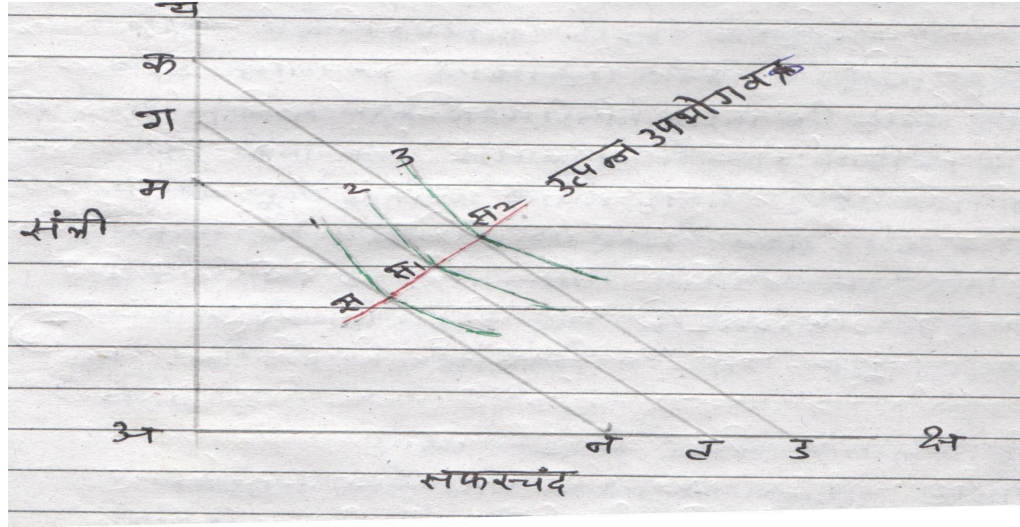 य
क
ग
म
संत्री
3
2
1
स2
स1
स
उत्पन्न उपभोग वक्र
अ
न
ट
ड
क्ष
सफरचंद